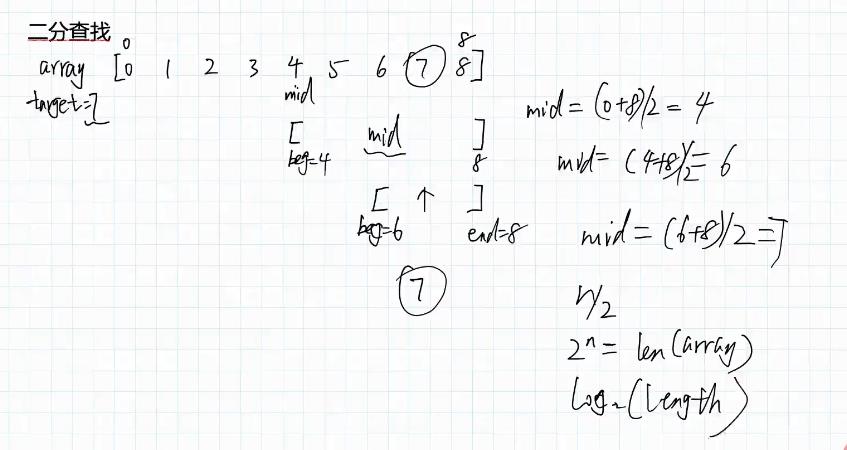 二分查找
0 8
array [0 1 2 3 4 5 6 7 8]
target=7 mid
mid = (0+8)/2 = 4
[ mid ]
beg=4 8
mid = (4+8)/2 = 6
[ ↑ ]
beg=6 end=8
mid = (6+8)/2 = 7
7
n/2
2ⁿ = len(array)
log₂(length)